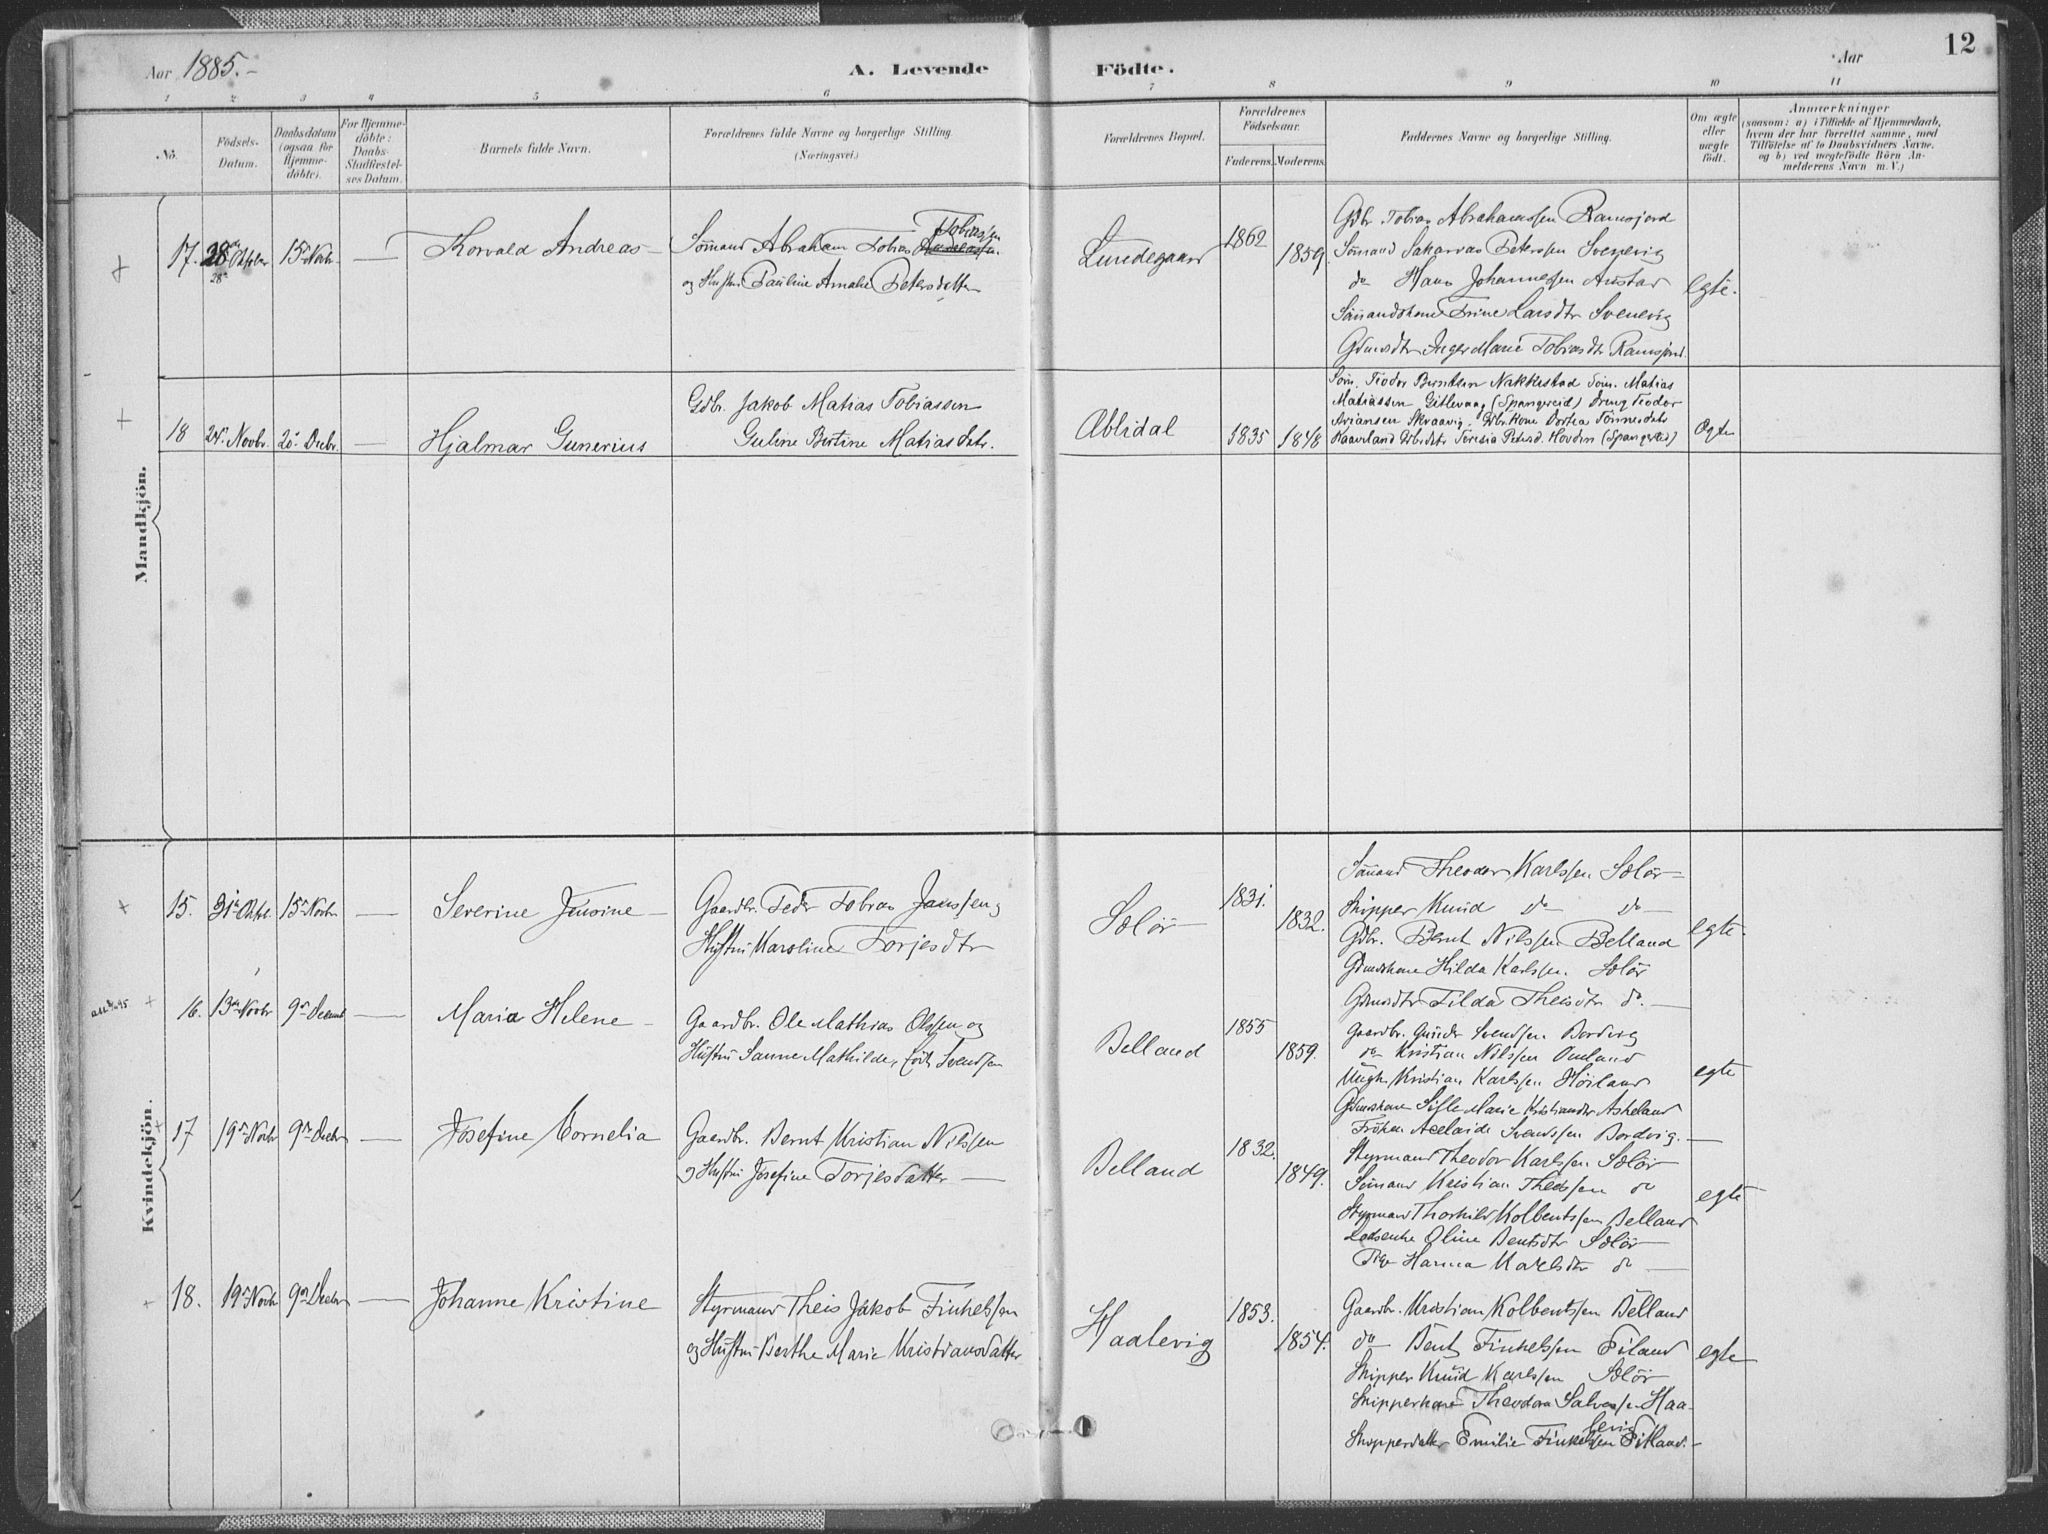 Aar 1885.-
A. Levende Födte.
Aar
12
1 2 3 4 5 6 7 8 9 10 11
No.
Födsels-Datum.
Daabsdatum (ogsaa for Hjemmedöbte).
For Hjemmedöbte: Daabs-Stadfæstelses Datum.
Barnets fulde Navn.
Forældrenes fulde Navne og borgerlige Stilling.
(Næringsvei.)
Forældrenes Bopæl.
Forældrenes Födselsaar.
Faderens. Moderens.
Faddernes Navne og borgerlige Stilling.
Om ægte eller uægte födt.
Anmærkninger
(saasom: a) i Tilfælde af Hjemmedaab, hvem der har forrettet samme, med Tilföielse af to Daabsvidners Navne, og b) ved uægtefödte Börn Anmelderens Navn m. V.)
Mandkjön.
17. 28de Oktober 28de 15de Novbr — Korvald Andreas —
Sömand Abraham Tobias Tobiassen
og Hustru Pauline Amalie Petersdatter
Lundegaard 1862 1859.
Gdbr Tobias Abrahamssen Ramsjord
Sömand Sakarias Peterssen Svenevig
do Hans Johannessen Austad
Sömandskone Trine Larsdtr Svenevig
Gdmdtr Inger Marie Tobiasdtr Ramsjord.
egte.
18 24. Novbr. 20. Decbr. — Hjalmar Gunerius
Gdbr. Jakob Matias Tobiassen
Guline Bertine Matiasdatr.
Ablidal 1835 1848
Söm. Teodor Berntsen Nakkestad Söm. Matias
Matiassen Gitlevaag (Spangereid) Dreng Teodor
Ariansen Skraavig. Gdbr. Kone Dortea Tönnesdatr
Haaverland Gdbrdatr Teresia Petersd. Hovden (Spangereid)
Ægte
Kvindekjön.
15. 31te Oktbr. 15de Novbr — Severine Jensine —
Gaardbr. Peder Tobias Janssen og
Hustru Karoline Torjesdtr
Sælör 1831. 1832.
Sömand Theodor Karlssen Sælör —
Skipper Knud do do —
Gdbr. Bernt Nilssen Belland
Gdmdskone Hilda Karlssen Sælör
Gdmdtr Tilda Theisdtr do. —
egte.
16. 13de Novbr 9de Decembr — Maria Helene —
Gaardbr. Ole Mathias Olssen og
Hustru Sanne Mathilde, födt Svendssen
Belland 1855 1859.
Gaardbr. Gunder Svendssen Bordvig
do Kristian Nilssen Omland
Ungk. Kristian Karlssen Höiland
Gdmdskone Sifle Marie Kristiansdtr Askeland
Fröken Adelaide Svendssen Bordvig. —
egte
17 19de Novbr 9de Decbr — Josefine Cornelia
Gaardbr. Bernt Kristian Nilssen
og Hustru Josefine Torjesdatter —
Belland 1832. 1849.
Styrmand Theodor Karlssen Sælör
Sömand Kristian Theissen do
Styrmand Thorkild Kolbentssen Belland
Lodsenke Oline Bentsdtr Sælör —
Pige Hanna Karlsdtr do —
egte
18. 19de Novbr 9de Decbr — Johanne Kristine
Styrmand Theis Jakob Finkelssen
og Hustru Berthe Marie Kristiansdatter
Haalevig 1853. 1854.
Gaardbr. Kristian Kolbentssen Belland
do Bent Finkelssen Eiland
Skipper Knud Karlssen Sælör
Skipperkone Theodora Salvessen Haa-
levig
Skipperdatter Emilie Finkelssen Eitland. —
egte